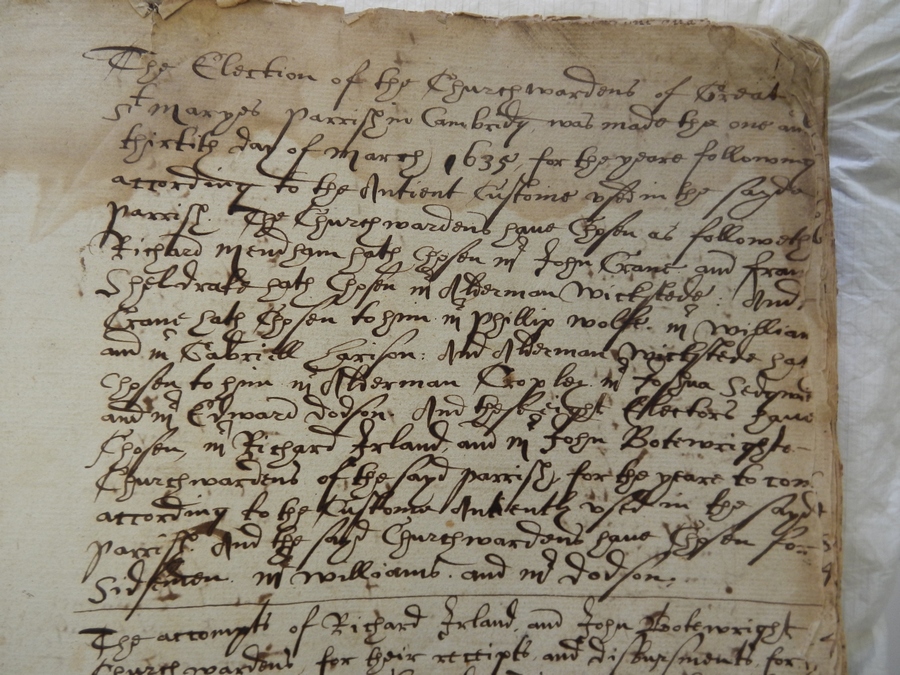 The Election of the Churchwardens of Great
St Maryes Parrish in Cambridg, was made the one an
thirtith day of March, 1635, for the yeare following
according to the Antient Custome vsed in the sayd
Parrish. The Churchwardens haue Chosen as followeth
Richard Mendham hath Chosen mr John Crane and fran
Sheldrake hath Chosen mr Alderman Wickstede: And
Crane hath Chosen to him mr Phillip Wolfe, mr William
and mr Gabriell Harison: And Alderman Wickstede hat
Chosen to him mr Alderman Cropley mr Joshua Sedgwi
and mr Edward Dodson. And these eight Electors haue
Chosen, mr Richard Irland, and mr John Botewrighte
Churchwardens of the sayd Parrish, for the yeare to com
according to the Custome Antiently vsed in the sayd
Parrish. And the sayd Churchwardens haue Chosen for
Sidsmen. mr Williams. and mr Dodson.
The accompts of Richard Irland, and John Botewright
Churchwardens, for their receipts, and disbursments, for